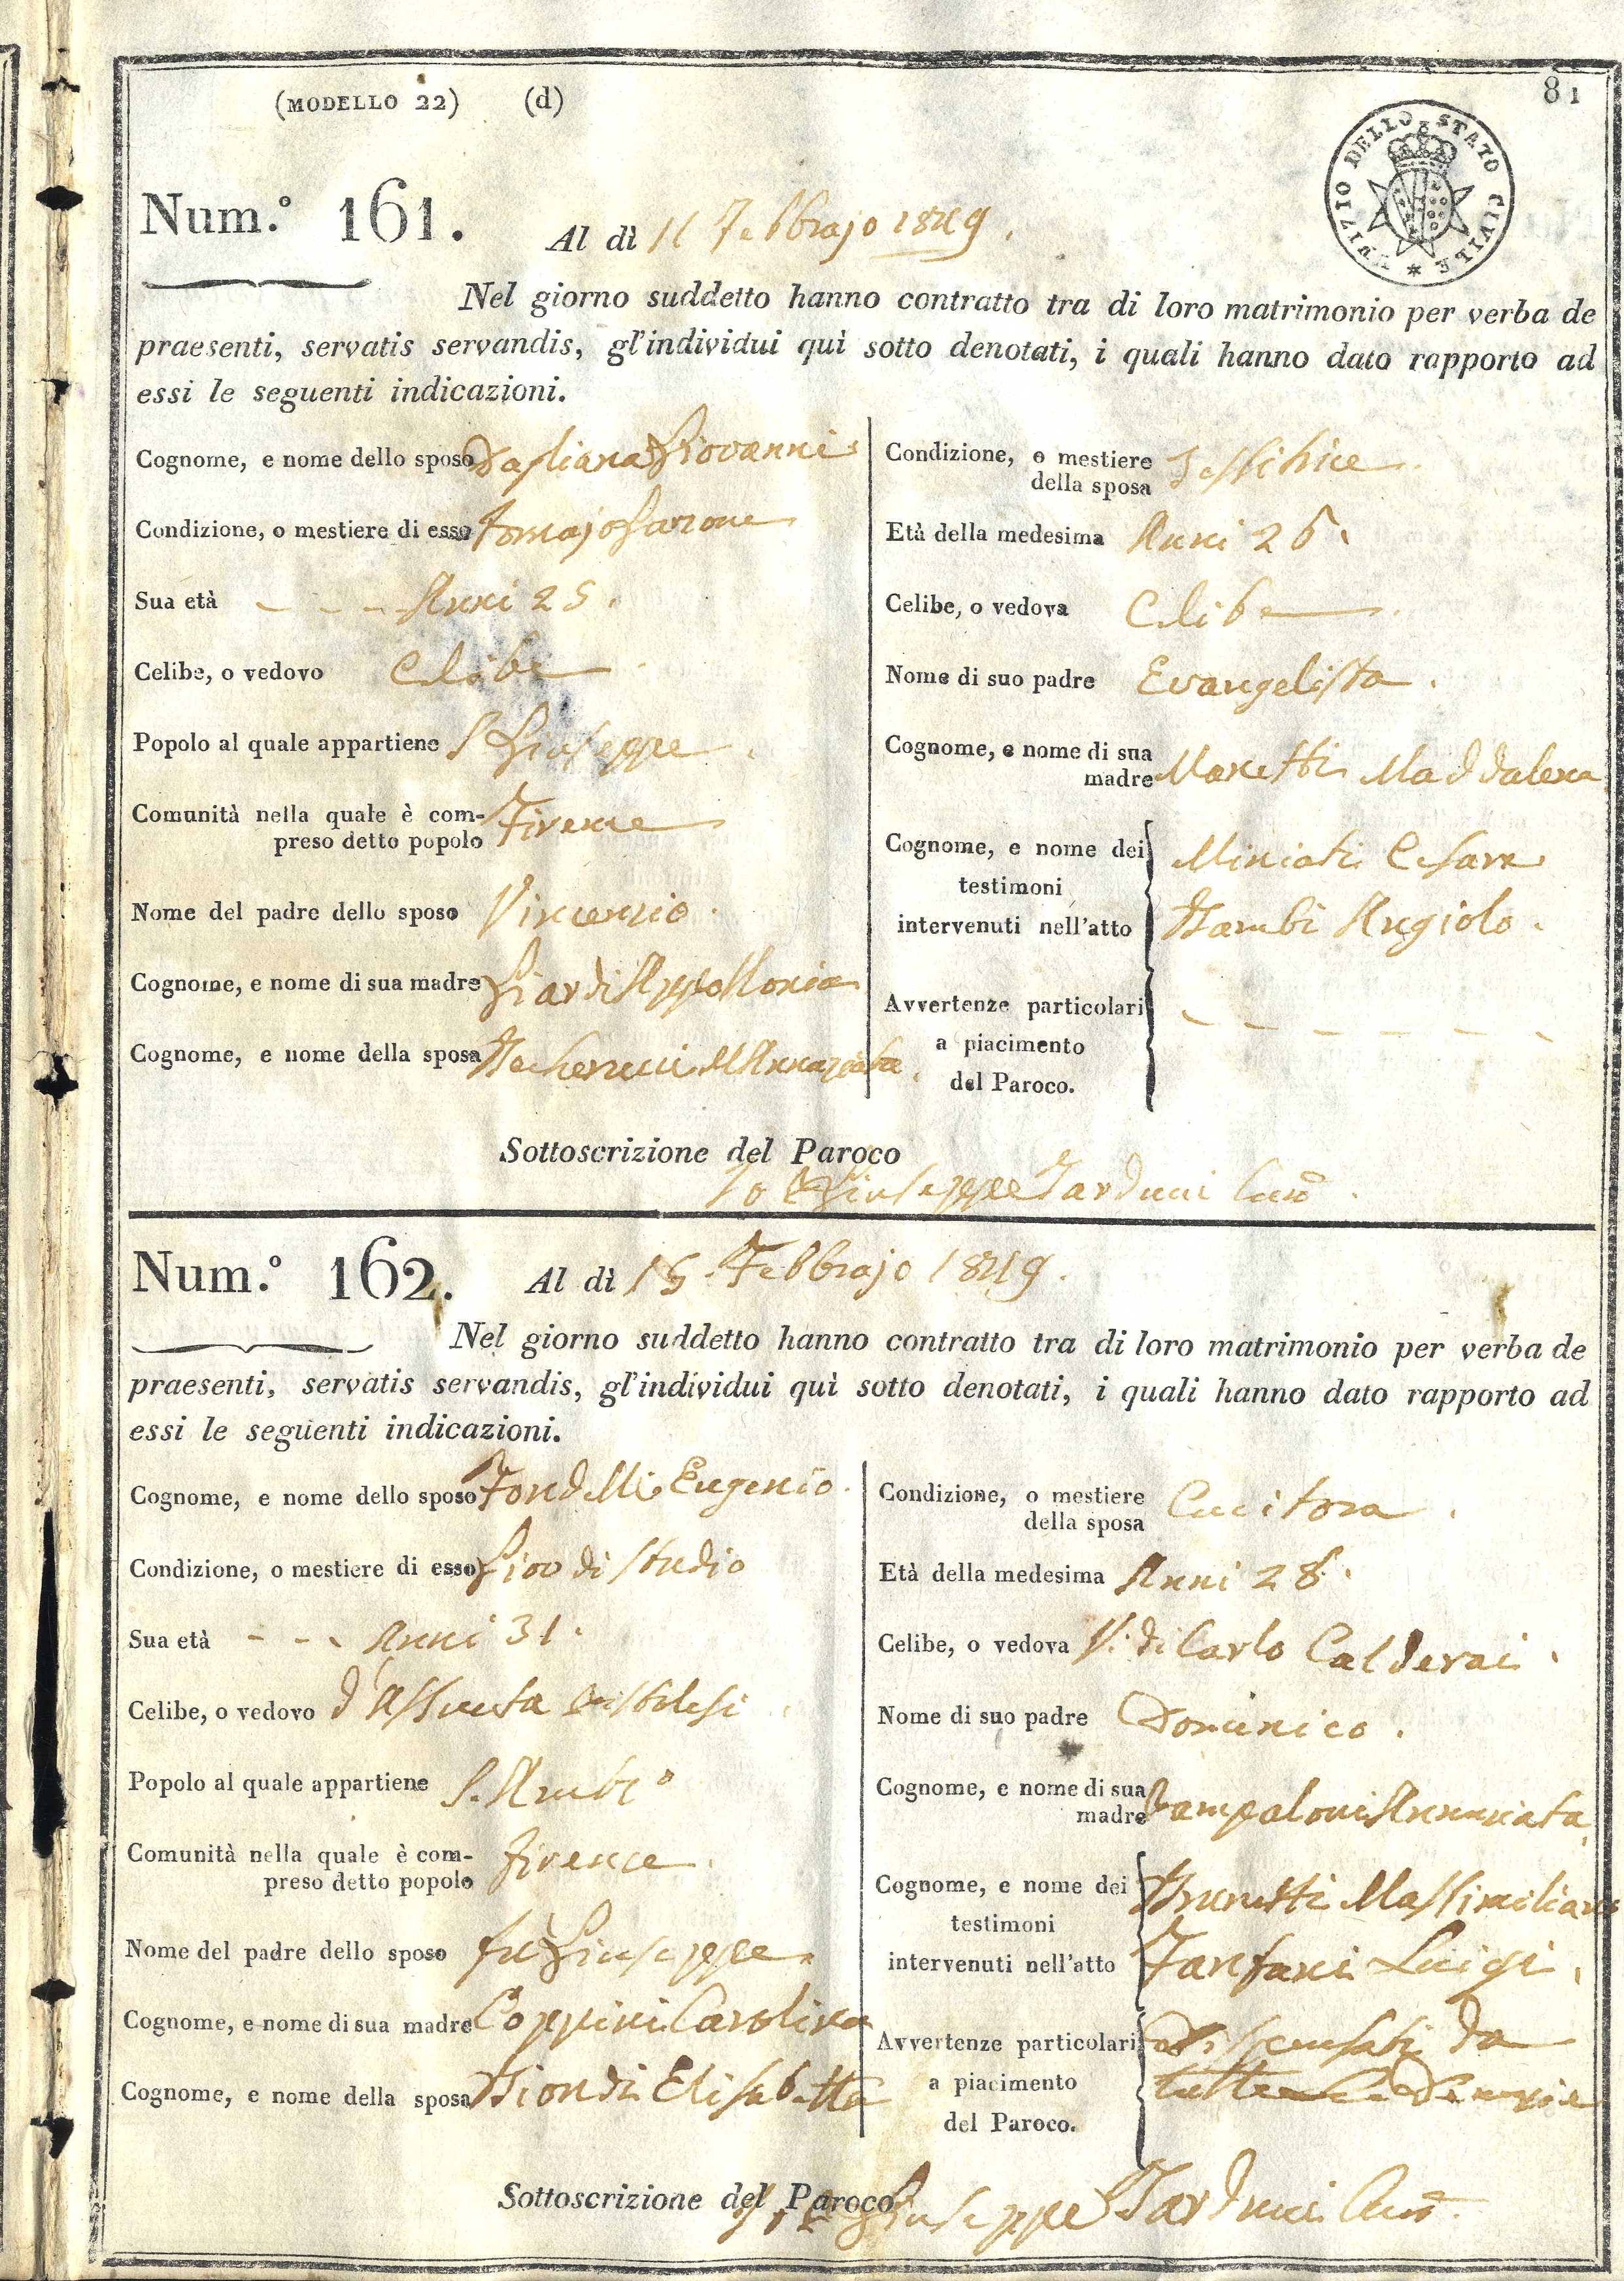 (MODELLO 22) (d)
81
UFIZIO DELLO STATO CIVILE
Num.º 161. Al dì 11 Febbrajo 1849.
Nel giorno suddetto hanno contratto tra di loro matrimonio per verba de
praesenti, servatis servandis, gl'individui quì sotto denotati, i quali hanno dato rapporto ad
essi le seguenti indicazioni.
Cognome, e nome dello sposo Dagliana Giovanni
Condizione, o mestiere di esso
Sua età Anni 25.
Celibe, o vedovo Celibe
Popolo al quale appartiene S Giuseppe
Comunità nella quale è com-
preso detto popolo Firenze
Nome del padre dello sposo Vincenzio
Cognome, e nome di sua madre Giardi Appollonia
Cognome, e nome della sposa
Condizione, o mestiere
della sposa Tessitrice
Età della medesima Anni 26.
Celibe, o vedova Celibe
Nome di suo padre Evangelista.
Cognome, e nome di sua
madre Manetti Maddalena
Cognome, e nome dei
testimoni
intervenuti nell'atto
Miniati Cesare
Bambi Angiolo.
Avvertenze particolari
a piacimento
del Paroco.
Sottoscrizione del Paroco
Giuseppe Tarducci
Num.º 162. Al dì 15. Febbrajo 1849.
Nel giorno suddetto hanno contratto tra di loro matrimonio per verba de
praesenti, servatis servandis, gl'individui quì sotto denotati, i quali hanno dato rapporto ad
essi le seguenti indicazioni.
Cognome, e nome dello sposo Fondelli Eugenio.
Condizione, o mestiere di esso Giov di studio
Sua età Anni 31.
Celibe, o vedovo d'Assunta Pistolesi
Popolo al quale appartiene S. Ambrº
Comunità nella quale è com-
preso detto popolo Firenze.
Nome del padre dello sposo fù Giuseppe
Cognome, e nome di sua madre Coppini Carolina
Cognome, e nome della sposa Biondi Elisabetta
Condizione, o mestiere
della sposa Cucitora
Età della medesima Anni 28.
Celibe, o vedova V. di Carlo Calderai.
Nome di suo padre Dominico.
Cognome, e nome di sua
madre Zampaloni Annunziata
Cognome, e nome dei
testimoni
intervenuti nell'atto
Brunetti Massimiliano
Fanfani Luigi.
Avvertenze particolari
a piacimento
del Paroco.
Dispensati da
tutte le Denunzie
Sottoscrizione del Paroco
Giuseppe Tarducci